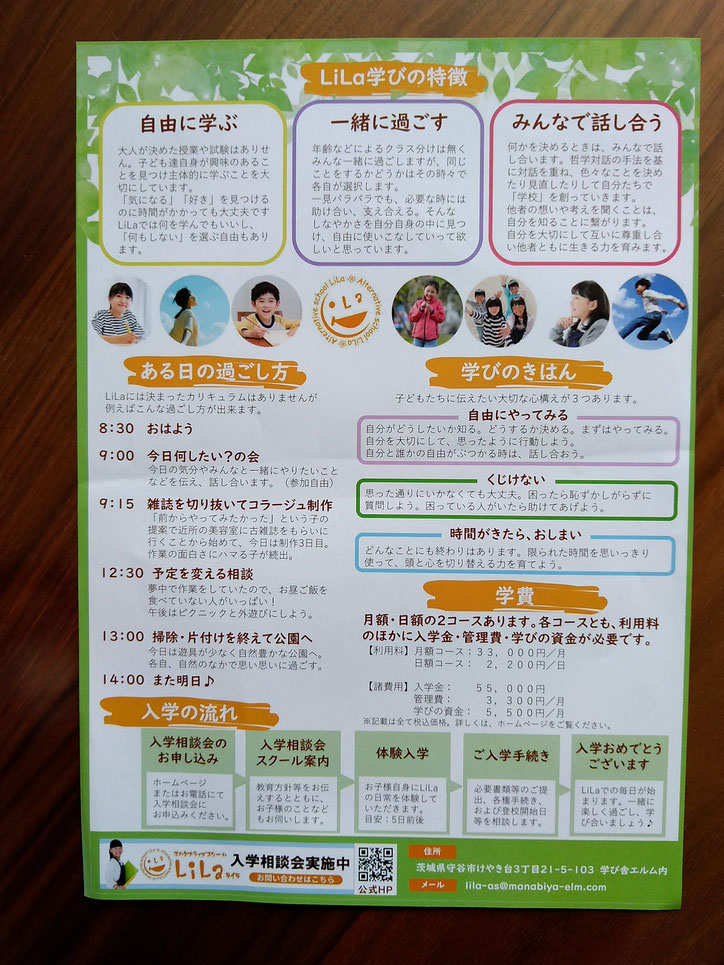 LiLa学びの特徴
自由に学ぶ
大人が決めた授業や試験はありませ
ん。子ども達自身が興味のあること
を見つけ主体的に学ぶことを大
切にしています。
「気になる」「好き」を見つける
のに時間がかかっても大丈夫です
LiLaでは何を学んでもいいし、
「何もしない」を選ぶ自由もあり
ます。
一緒に過ごす
年齢などによるクラス分けは無く
みんな一緒に過ごしますが、同じ
ことをするかどうかはその時々で
各自が選択します。
一見バラバラでも、必要な時には
助け合い、支え合える。そんな
しなやかさを自分自身の中に見つ
け、自由に使いこなしていって欲
しいと思っています。
みんなで話し合う
何かを決めるときは、みんなで話
し合います。哲学対話の手法を基
に対話を重ね、色々なことを決め
たり見直したりして自分たちで
「学校」を創っていきます。
他者の想いや考えを聞くことは、
自分を知ることに繋がります。
自分を大切にして互いに尊重し合
い他者ともに生きる力を育みます。
LiLa
Alternative school LiLa
Alternative school LiLa
ある日の過ごし方
LiLaには決まったカリキュラムはありませんが
例えばこんな過ごし方が出来ます。
8:30 おはよう
9:00 今日何したい？の会
今日の気分やみんなと一緒にやりたいこと
などを伝え、話し合います。（参加自由）
9:15 雑誌を切り抜いてコラージュ制作
「前からやってみたかった」という子の
提案で近所の美容室に古雑誌をもらいに
行くことから始めて、今日は制作3日目。
作業の面白さにハマる子が続出。
12:30 予定を変える相談
夢中で作業をしていたので、お昼ご飯を
食べていない人がいっぱい！
午後はピクニックと外遊びにしよう。
13:00 掃除・片付けを終えて公園へ
今日は遊具が少なく自然豊かな公園へ。
各自、自然のなかで思い思いに過ごす。
14:00 また明日♪
学びのきはん
子どもたちに伝えたい大切な心構えが３つあります。
自由にやってみる
自分がどうしたいか知る。どうするか決める。まずはやってみる。
自分を大切にして、思ったように行動しよう。
自分と誰かの自由がぶつかる時は、話し合おう。
くじけない
思った通りにいかなくても大丈夫。困ったら恥ずかしがらずに
質問しよう。困っている人がいたら助けてあげよう。
時間がきたら、おしまい
どんなことにも終わりはあります。限られた時間を思いっきり
使って、頭と心を切り替える力を育てよう。
学費
月額・日額の2コースあります。各コースとも、利用料
のほかに入学金・管理費・学びの資金が必要です。
【利用料】月額コース：３３，０００円／月
日額コース：　２，２００円／日
【諸費用】入学金：　５５，０００円
管理費：　３，３００円／月
学びの資金：　５，５００円／月
※記載は全て税込価格。詳しくは、ホームページをご覧ください。
入学の流れ
入学相談会の
お申し込み
ホームページ
またはお電話にて
入学相談会に
お申込みください。
入学相談会
スクール案内
教育方針等をお伝
えするとともに、
お子様のことなども
お伺いします。
体験入学
お子様自身にLiLa
の日常を体験して
いただきます。
目安：5日前後
ご入学手続き
必要書類等のご提
出、各種手続き、
および登校開始日
等を相談します。
入学おめでとう
ございます
LiLaでの毎日が始
まります。一緒に
楽しく過ごし、学
び合いましょう♪
オルタナティブスクール
LiLa ライラ
入学相談会実施中
お問い合わせはこちら
公式HP
住所
茨城県守谷市けやき台3丁目21-5-103 学び舎エルム内
メール
lila-as@manabiya-elm.com